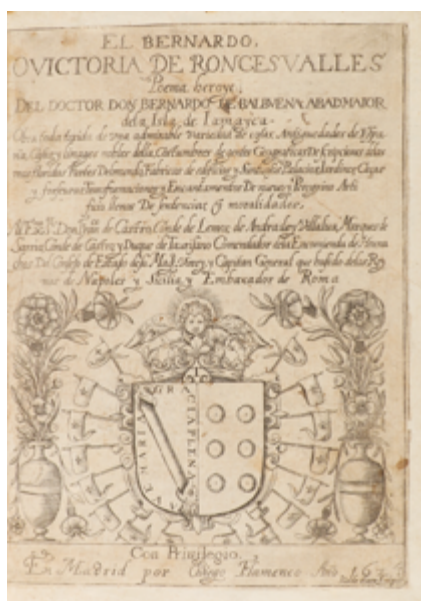 EL BERNARDO,
O VICTORIA DE RONCESVALLES
Poema heroyco,
DEL DOCTOR DON BERNARDO DE BALBVENA ABAD MAIOR
de la Isla de Iamayca.
Obra toda tegida de una admirable variedad de cosas. Antiguedades de Espa
ña, Casas y linages nobles della, Costumbres de gentes Geograficas Descripciones de las
mas floridas Partes Del mundo, Fabricas de edificios y Suntuosos Palacios, Jardines, Cazas
y frescuras, Transformaciones y Encantamentos De nuevo y Peregrino Arti
ficio llenos De sentencias y moralidades.
Al Don de Castro, Conde de Lemos, de Andrade y Villalva, Marques de
Sarria, Conde de Castro, y Duque de Comendador de la Encomienda de
Del Consejo de Estado de su y Capitan General que de los Rey
nos de Napoles y Sicilia y Embaxador de Roma
GRACIA PLEN
AVE MARIA
Con Privilegio.
En Madrid por Diego Flamenco Año